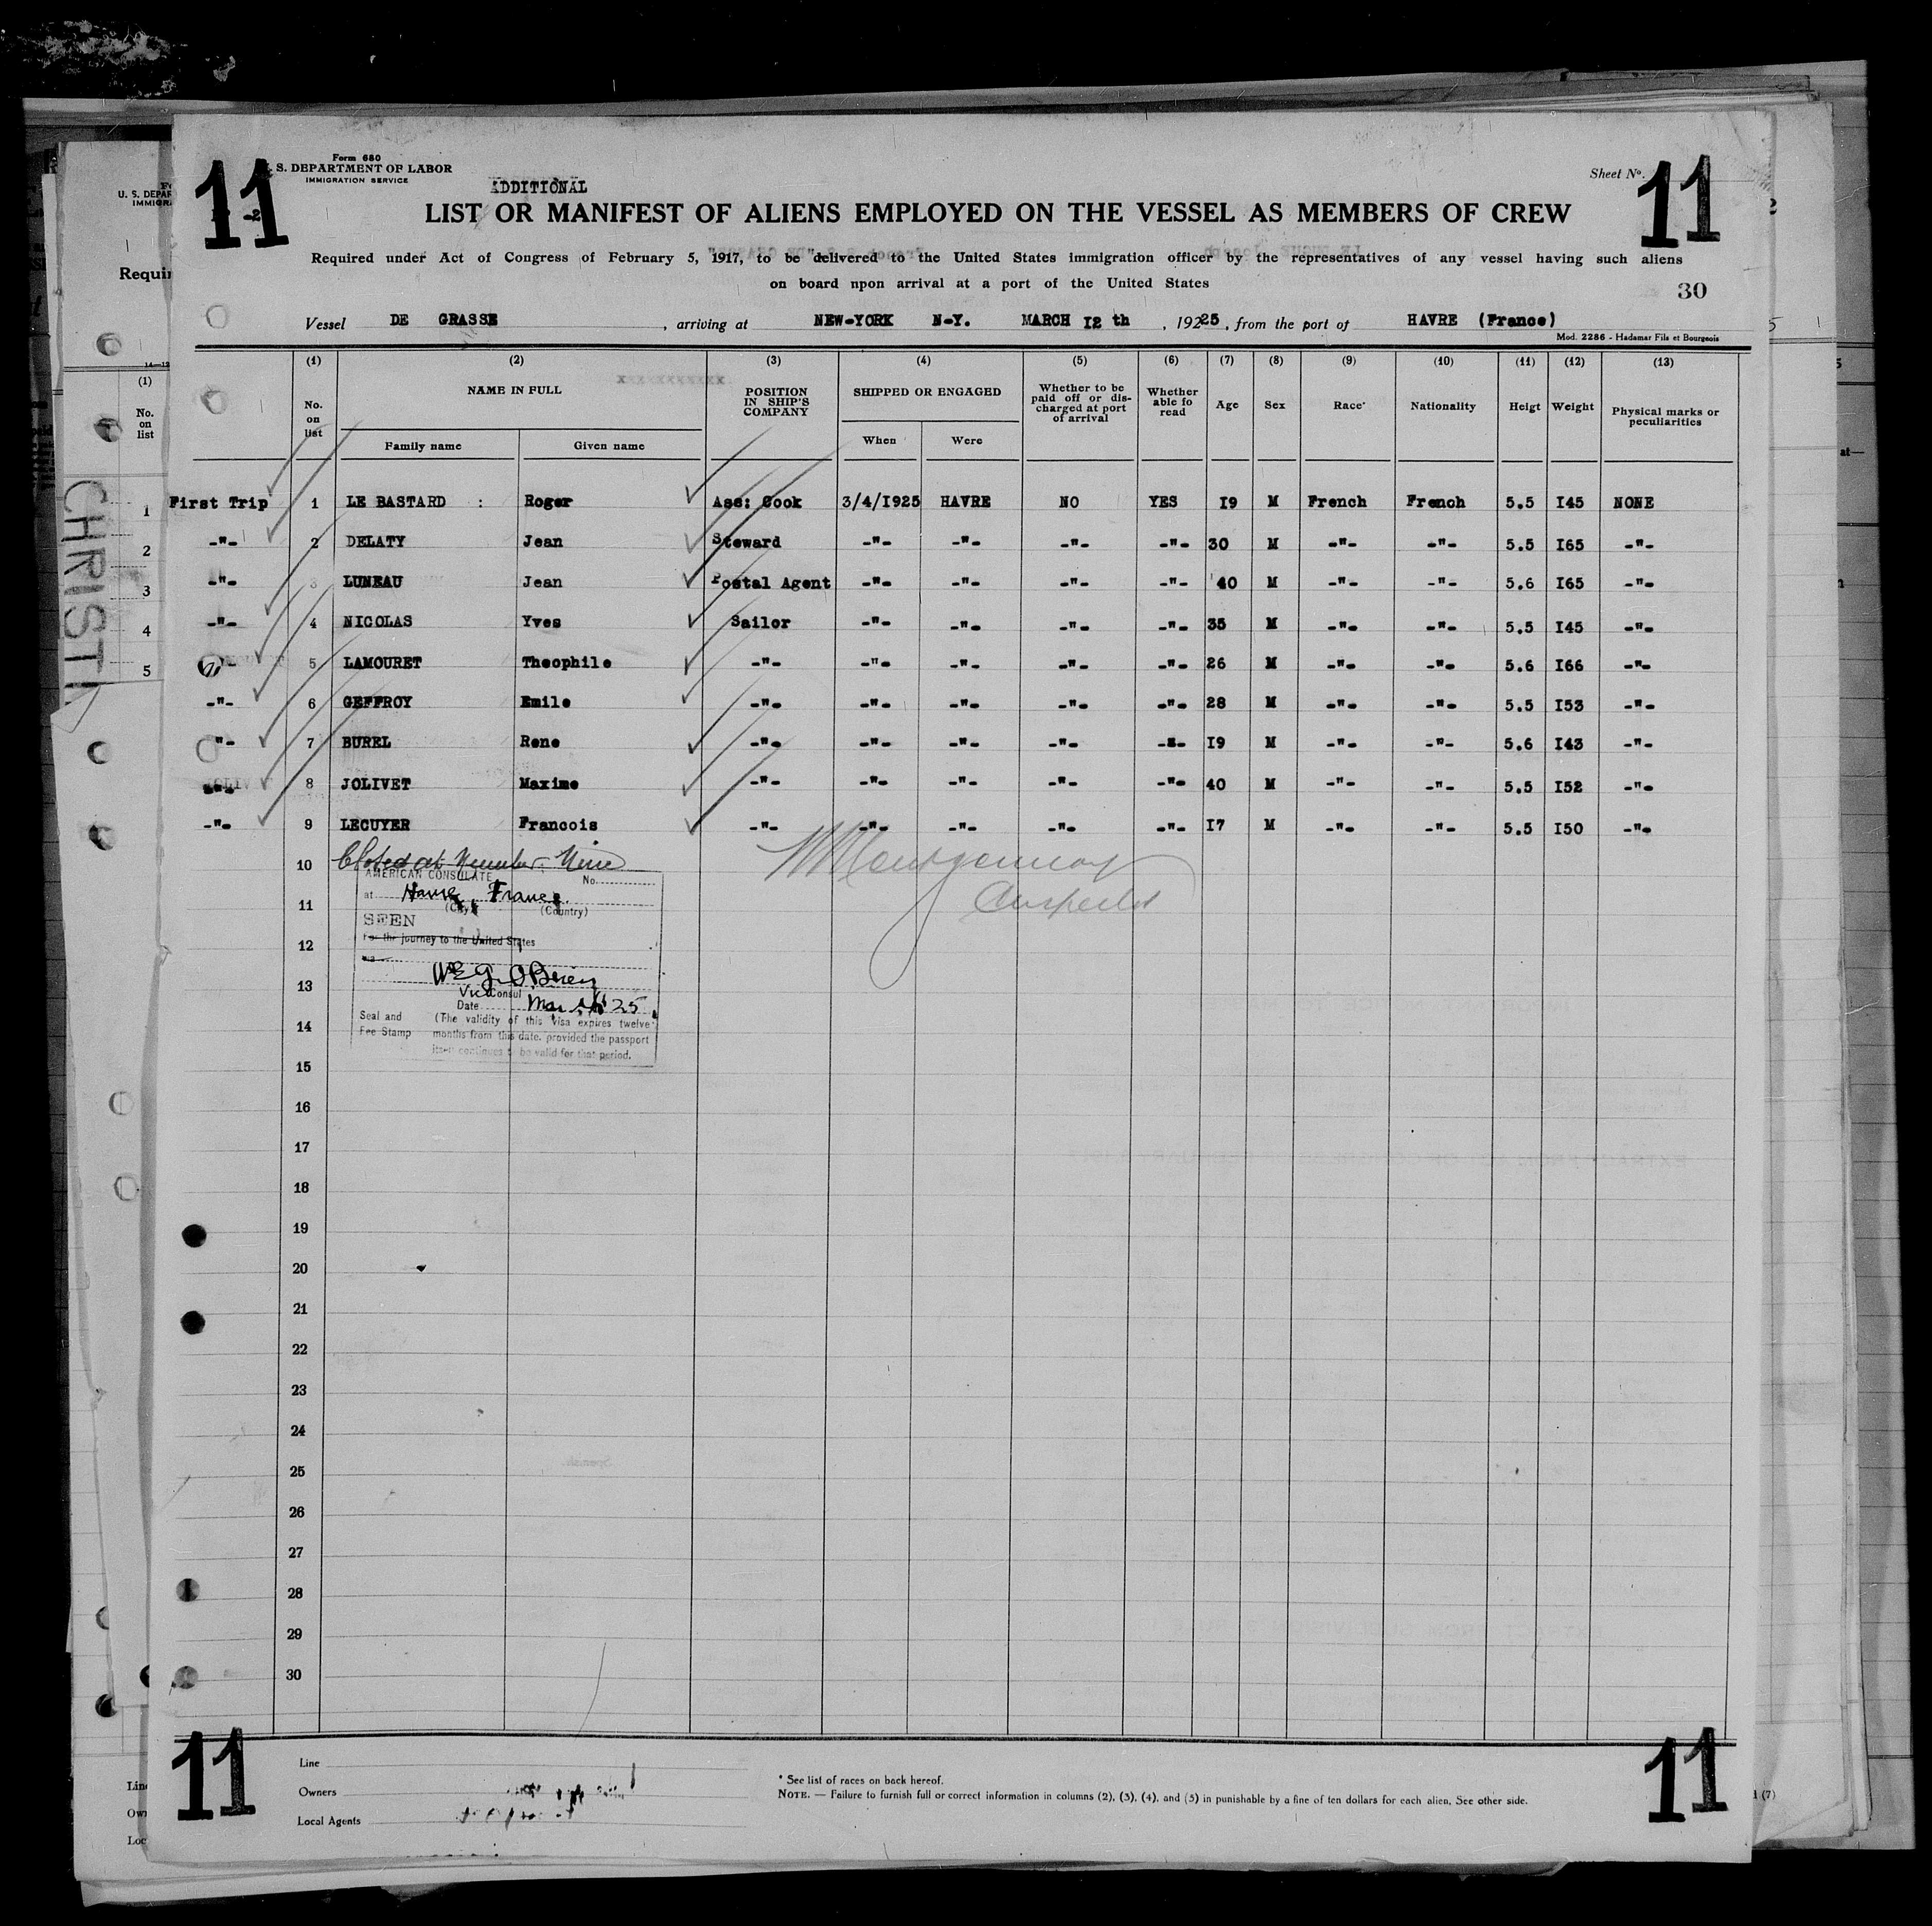 11
Form 680
S. DEPARTMENT OF LABOR
IMMIGRATION SERVICE
ADDITIONAL
Sheet No.
11
LIST OR MANIFEST OF ALIENS EMPLOYED ON THE VESSEL AS MEMBERS OF CREW
Required under Act of Congress of February 5, 1917, to be delivered to the United States immigration officer by the representatives of any vessel having such aliens
on board npon arrival at a port of the United States
30
Vessel DE GRASSE , arriving at NEW-YORK N-Y. MARCH I2 th , 19225 , from the port of HAVRE (France)
Mod. 2286 - Hadamar Fils et Bourgeois
(1) (2) (3) (4) (5) (6) (7) (8) (9) (10) (11) (12) (13)
No. on list NAME IN FULL POSITION IN SHIP'S COMPANY SHIPPED OR ENGAGED Whether to be paid off or discharged at port of arrival Whether able fo read Age Sex Race* Nationality Heigt Weight Physical marks or peculiarities
Family name Given name When Were
First Trip 1 LE BASTARD : Roger Ass: Cook 3/4/I925 HAVRE NO YES I9 M French French 5.5 I45 NONE
-"- 2 DELATY Jean Steward -"- -"- -"- -"- 30 M -"- -"- 5.5 I65 -"-
-"- 3 LUNEAU Jean Postal Agent -"- -"- -"- -"- 40 M -"- -"- 5.6 I65 -"-
-"- 4 NICOLAS Yves Sailor -"- -"- -"- -"- 35 M -"- -"- 5.5 I45 -"-
-"- 5 LAMOURET Theophile -"- -"- -"- -"- -"- 26 M -"- -"- 5.6 I66 -"-
-"- 6 GEFFROY Emile -"- -"- -"- -"- -"- 28 M -"- -"- 5.5 I53 -"-
-"- 7 BUREL Rene -"- -"- -"- -"- -"- I9 M -"- -"- 5.6 I43 -"-
-"- 8 JOLIVET Maxime -"- -"- -"- -"- -"- 40 M -"- -"- 5.5 I52 -"-
-"- 9 LECUYER Francois -"- -"- -"- -"- -"- I7 M -"- -"- 5.5 I50 -"-
10 Closed at Number Nine
AMERICAN CONSULATE No.
at Havre, France.
11 (City) (Country)
SEEN
12 For the journey to the United States
13 O'Brien
Vice Consul
Date Mar 25
14 Seal and Fee Stamp (The validity of this visa expires twelve
months from this date. provided the passport
itself continues to be valid for that period.
Montgomery
15
16
17
18
19
20
21
22
23
24
25
26
27
28
29
30
11
Line
Owners
Local Agents
* See list of races on back hereof.
NOTE. — Failure to furnish full or correct information in columns (2), (3), (4), and (5) in punishable by a fine of ten dollars for each alien, See other side.
11
U. S. DEPAR
IMMIGRA
Requir
(1)
No.
on
list
CHRISTI
1
2
3
4
5